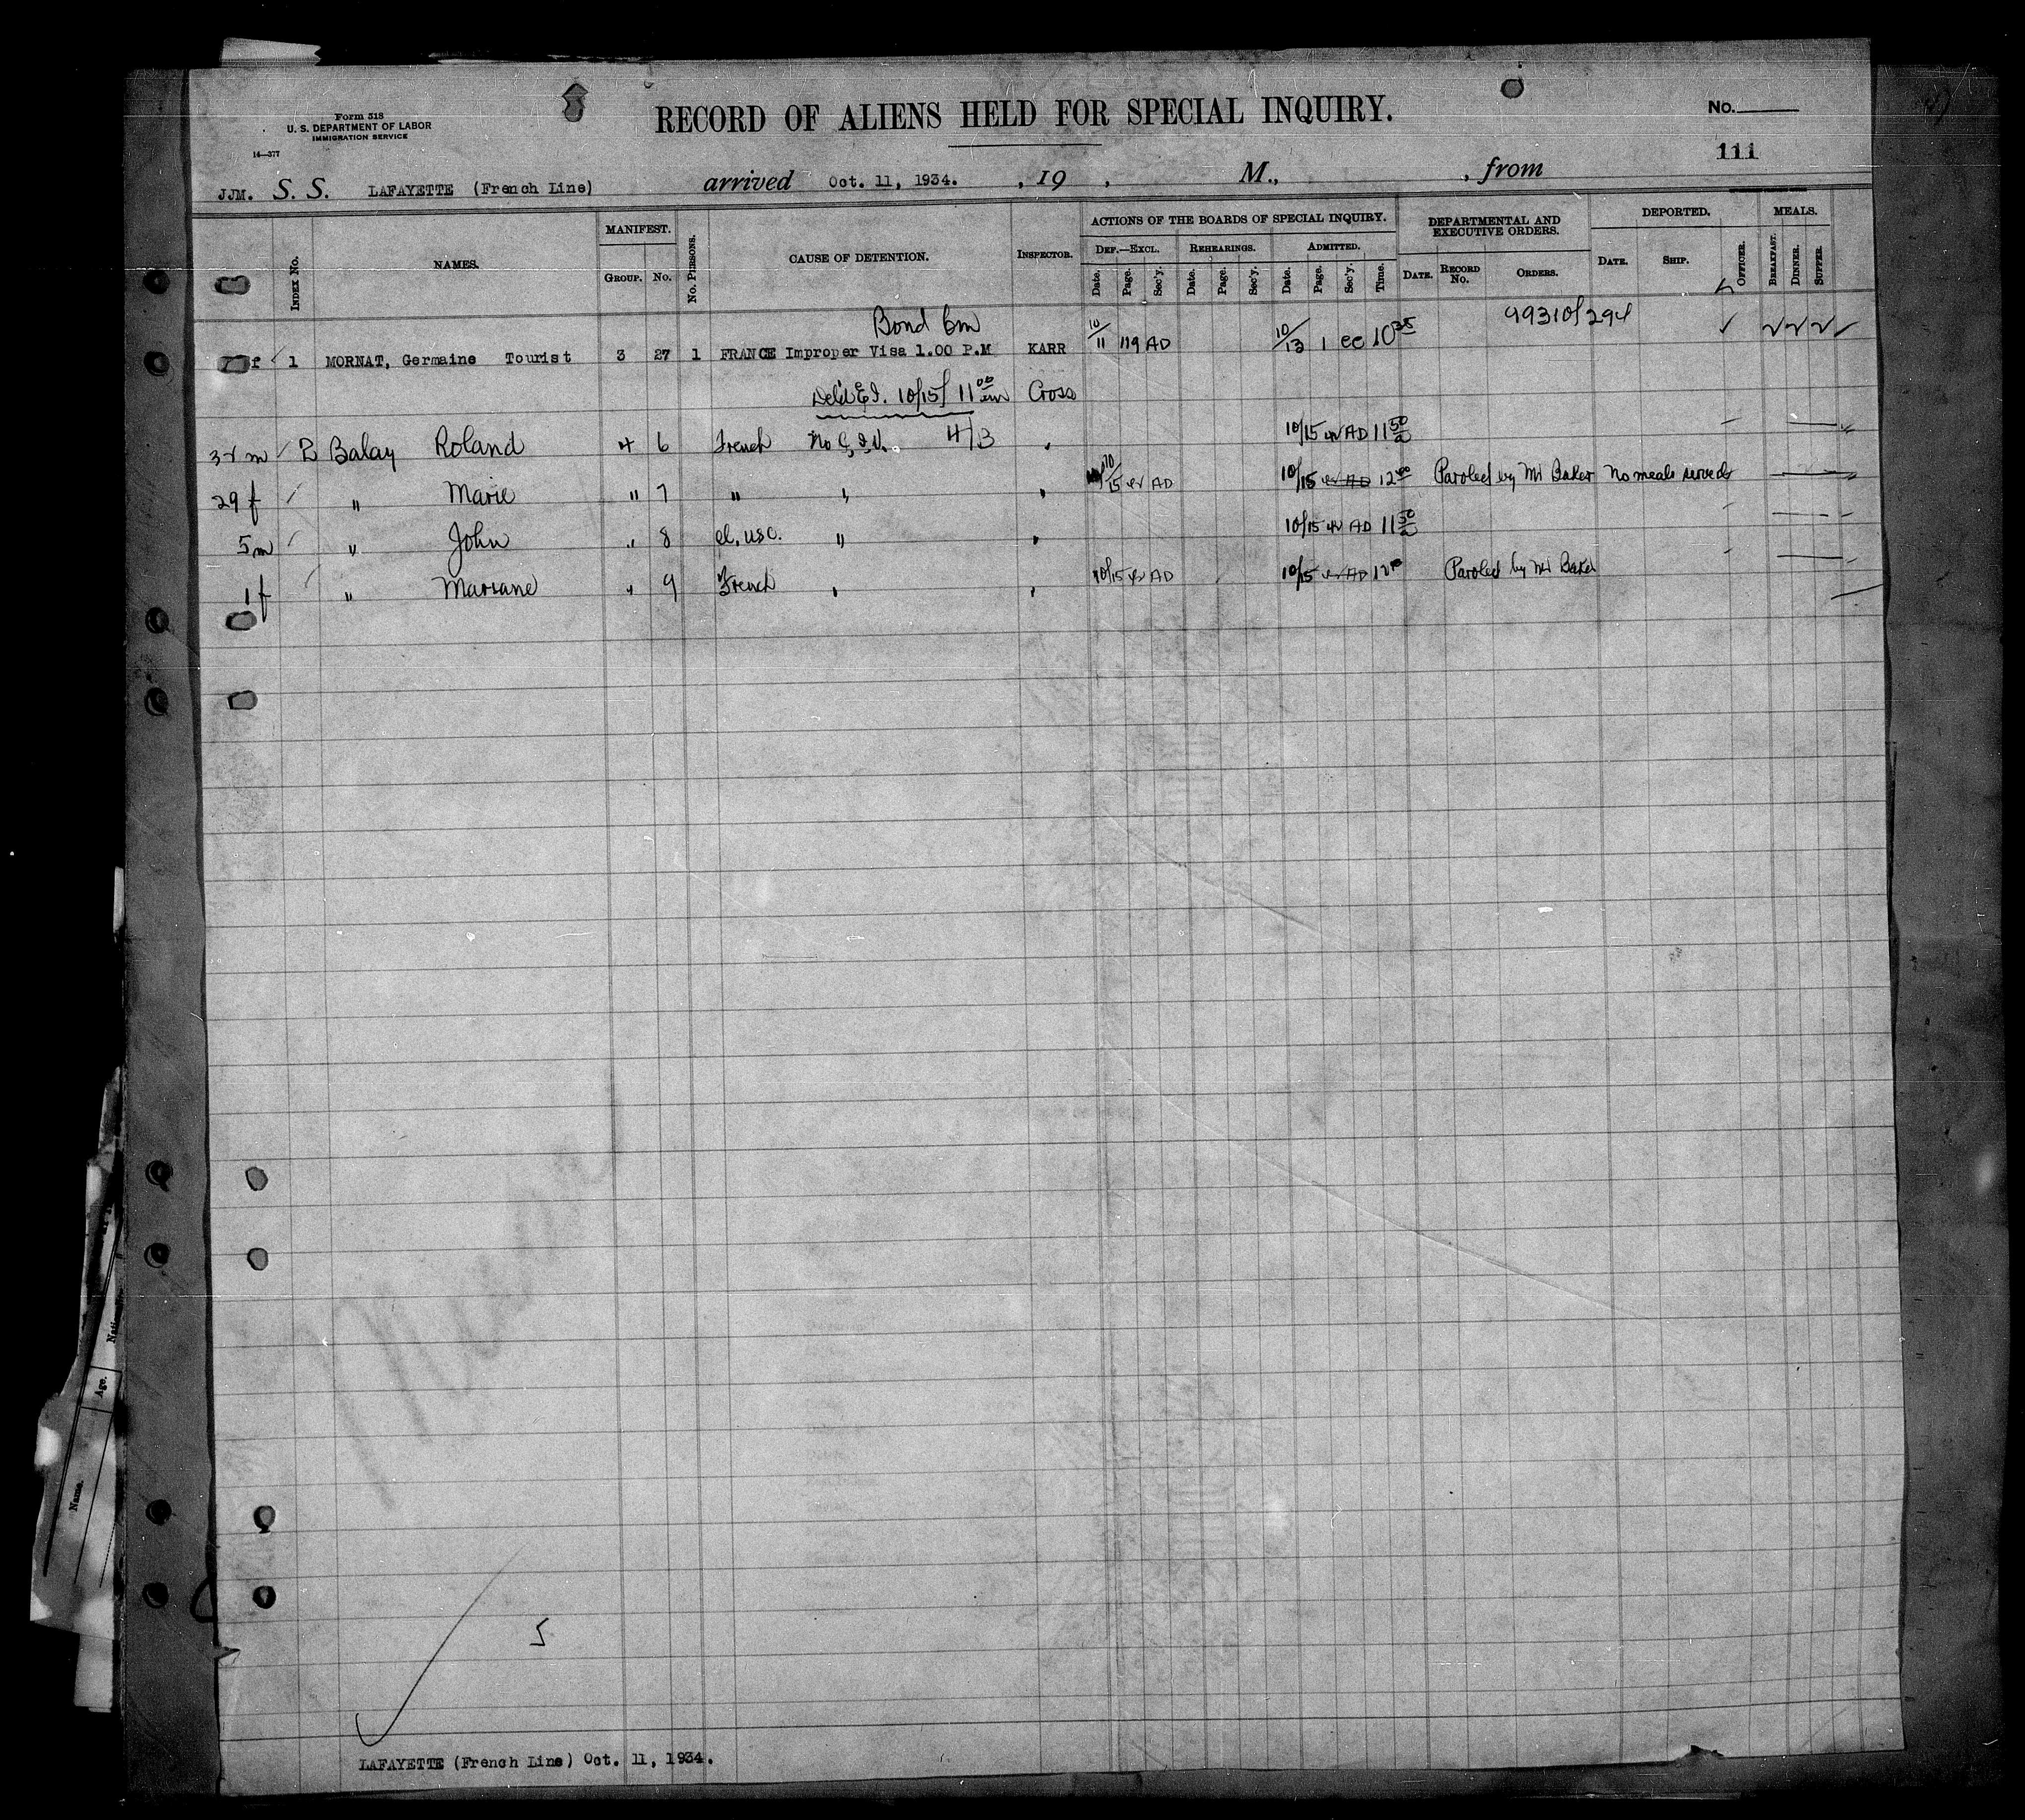 Form 318
U. S. DEPARTMENT OF LABOR
IMMIGRATION SERVICE
14—377
RECORD OF ALIENS HELD FOR SPECIAL INQUIRY.
No.
111
JJM. S. S. LAFAYETTE (French Line) arrived Oct. 11, 1934. , 19 , M., , from
INDEX No. NAMES. MANIFEST. GROUP. No. No. PERSONS. CAUSE OF DETENTION. INSPECTOR. ACTIONS OF THE BOARDS OF SPECIAL INQUIRY. DEF.—EXCL. Date. Page. Sec'y. REHEARINGS. Date. Page. Sec'y. ADMITTED. Date. Page. Sec'y. Time. DEPARTMENTAL AND EXECUTIVE ORDERS. DATE. RECORD No. ORDERS. DEPORTED. DATE. SHIP. OFFICER. MEALS. BREAKFAST. DINNER. SUPPER.
Bond 6m 99310/294
f 1 MORNAT, Germaine Tourist 3 27 1 FRANCE Improper Visa 1.00 P.M KARR 10/11 119 AD 10/13 1 ec 10 35
10/15/ 11 00 Cross
m 2 Balay Roland 4 6 French No 4/3 " 10/15 AD 11 50
29 f " Marie " 7 " " " 10/15 AD 10/15 AD 12 00 Paroled by Mr Baker No meals served
5 m " John " 8 cl. usc. " " 10/15 AD 11 50
1 f " Mariane " 9 French " " 10/15 AD 10/15 AD 12 00 Paroled by Mr Baker
5
LAFAYETTE (French Line) Oct. 11, 1934.
Nati
Age.
Name.